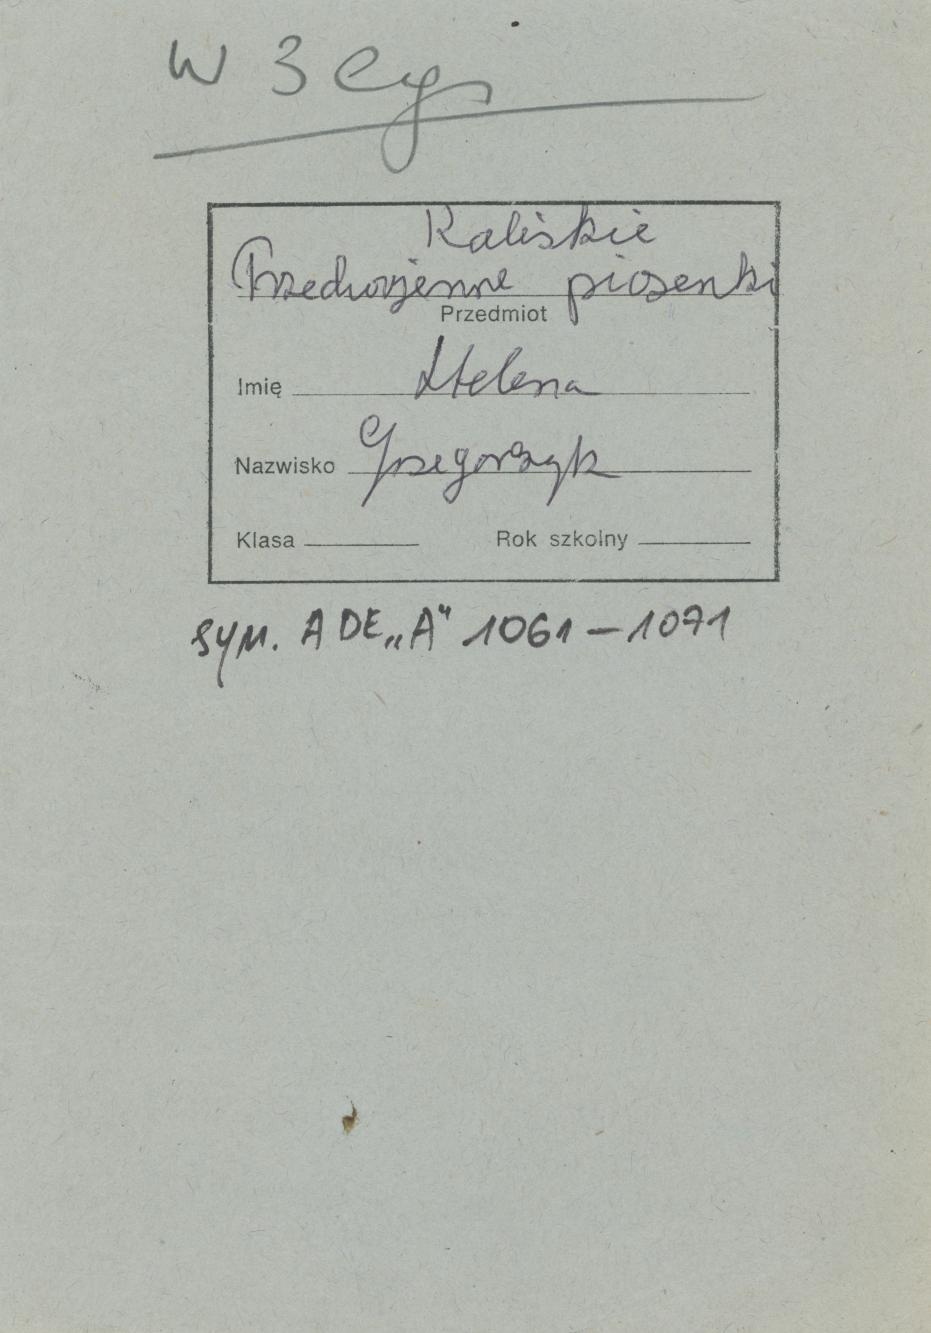 W 3 eg
Kaliskie
Przedwojenne piosenki
Przedmiot
Imię Helena
Nazwisko Grzegorzyk
Klasa
Rok szkolny
sym. A DE „A" 1061 – 1071